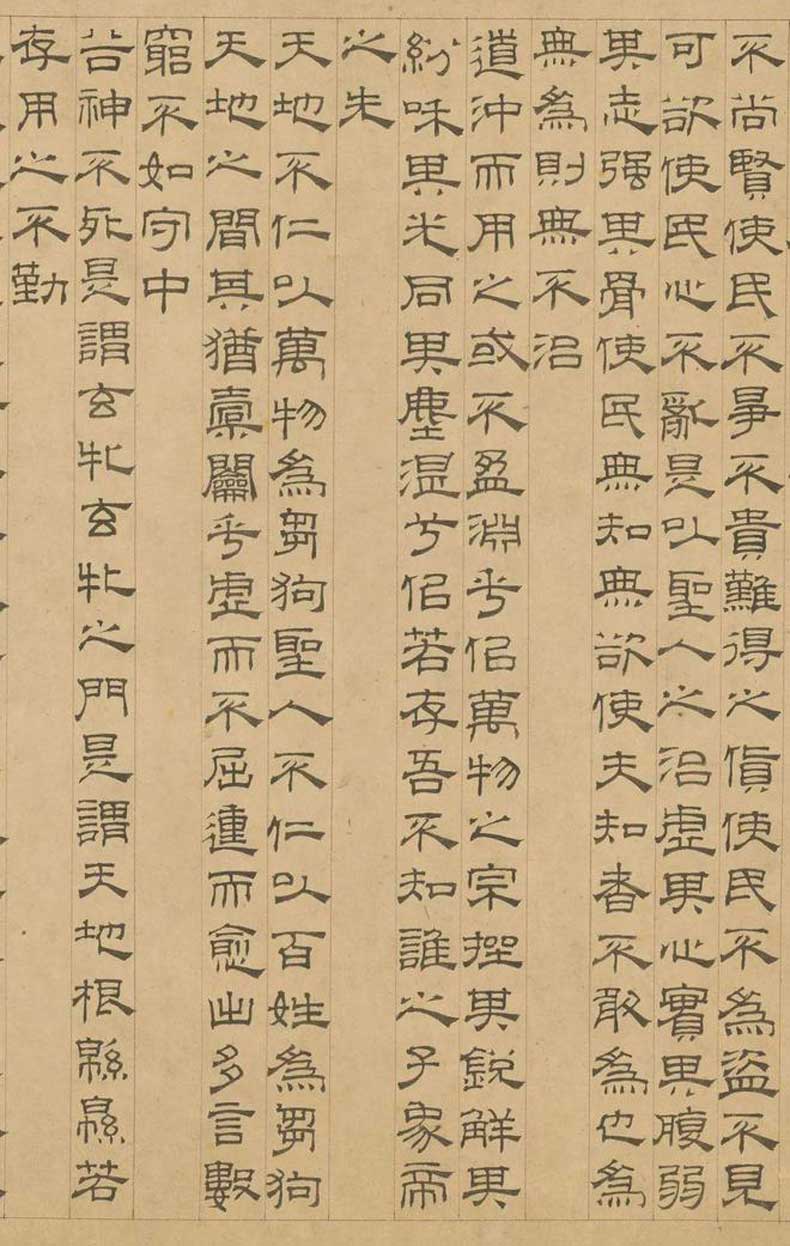 不尚賢使民不爭不貴難得之貨使民不為盜不見
可欲使民心不亂是以聖人之治虛其心實其腹弱
其志强其骨使民無知無欲使夫知者不敢為也為
無為則無不治
道沖而用之或不盈淵乎似萬物之宗挫其銳解其
紛和其光同其塵湛兮似若存吾不知誰之子象帝
之先
天地不仁以萬物為芻狗聖人不仁以百姓為芻狗
天地之間其猶橐籥乎虛而不屈運而愈出多言數
窮不如守中
谷神不死是謂玄牝玄牝之門是謂天地根緜緜若
存用之不勤